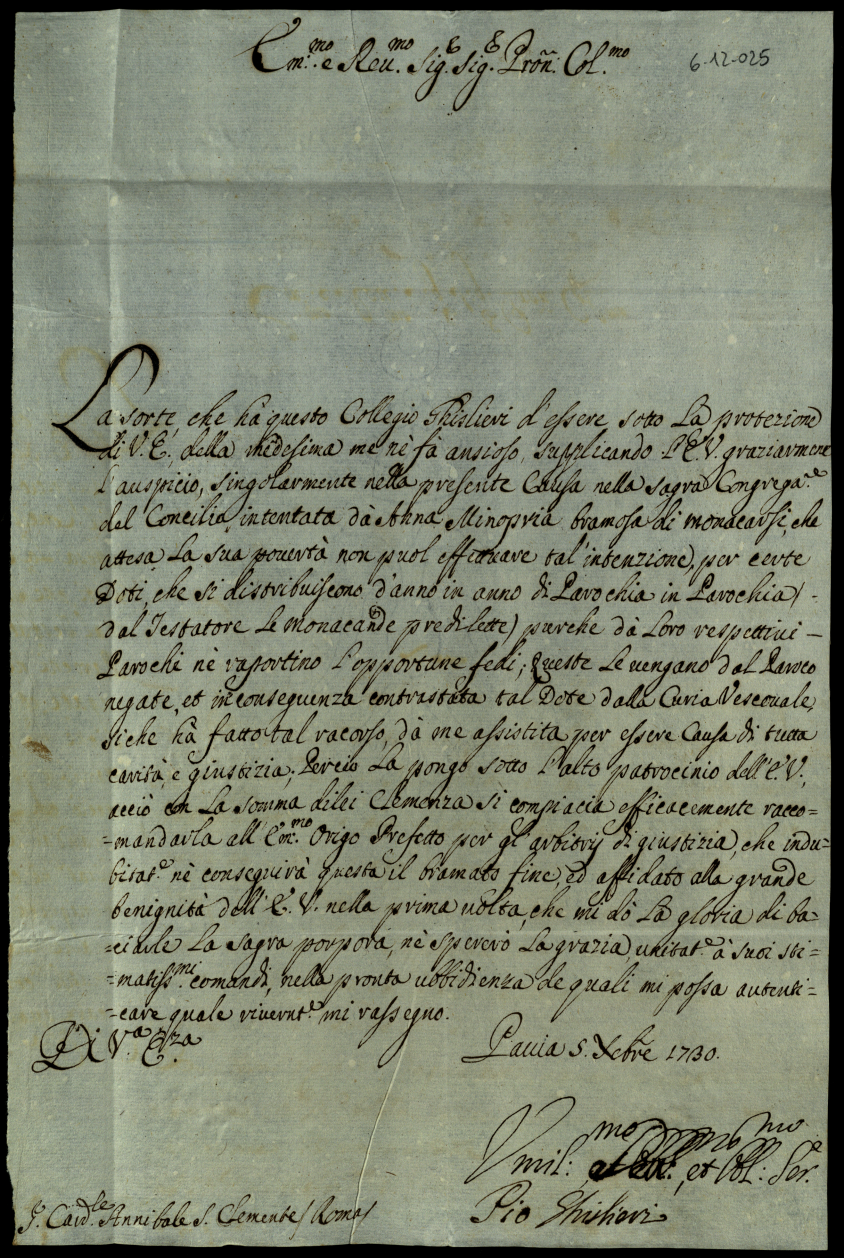 Em.mo e Reu.mo Sig.e Sig.e Prõn: Col.mo
6-12-025
La sorte, che hà questo Collegio Ghislieri d'essere sotto La protezione
di V. E. della medesima me nè fà ansioso, supplicando l'E. V. graziarmene
l'auspicio, singolarmente nella presente Causa nella sagra Congrega.e
del Concilia intentata dà Anna Minopria bramosa di monacarsi, che
attesa La sua pouertà non puol effettuare tal'intenzione, per certe
Doti, che si distribuiscono d'anno in anno di Parochia in Parochia (-
dal Testatore Le monacande predilette) purche dà Loro respettiui -
Parochi nè raportino l'opportune fedi; Queste Le uengano dal Paroco
negate, et in conseguenza contrastata tal Dote dalla Curia Vescouale,
siche hà fatto tal racorso, dà me assistita per essere Causa di tutta
carità, e giustizia; Perciò La pongo sotto l'alto patrocinio dell'E. V.,
acciò con La somma dilei Clemenza si compiacia efficacemente racco=
=mandarla all'Em.mo Origo Prefetto per gl'arbitrij di giustizia, che indu=
bitat.e nè conseguirà questa il bramato fine, ed affidato alla grande
benignità dell'E. V. nella prima uolta, che mi dò La gloria di ba=
=ciarle La sagra porpora, nè spererò La grazia, unitat.e à suoi sti=
=matiss.mi comandi, nella pronta ubbidienza de quali mi possa autenti=
=care quale riuernt.e mi rassegno.
Di V.a E.za
Pauia 5. Xcbre 1730.
Vmil:mo et Obl:mo Ser.e
Pio Ghislieri
S. Card.le Annibale S. Clemente / Roma /